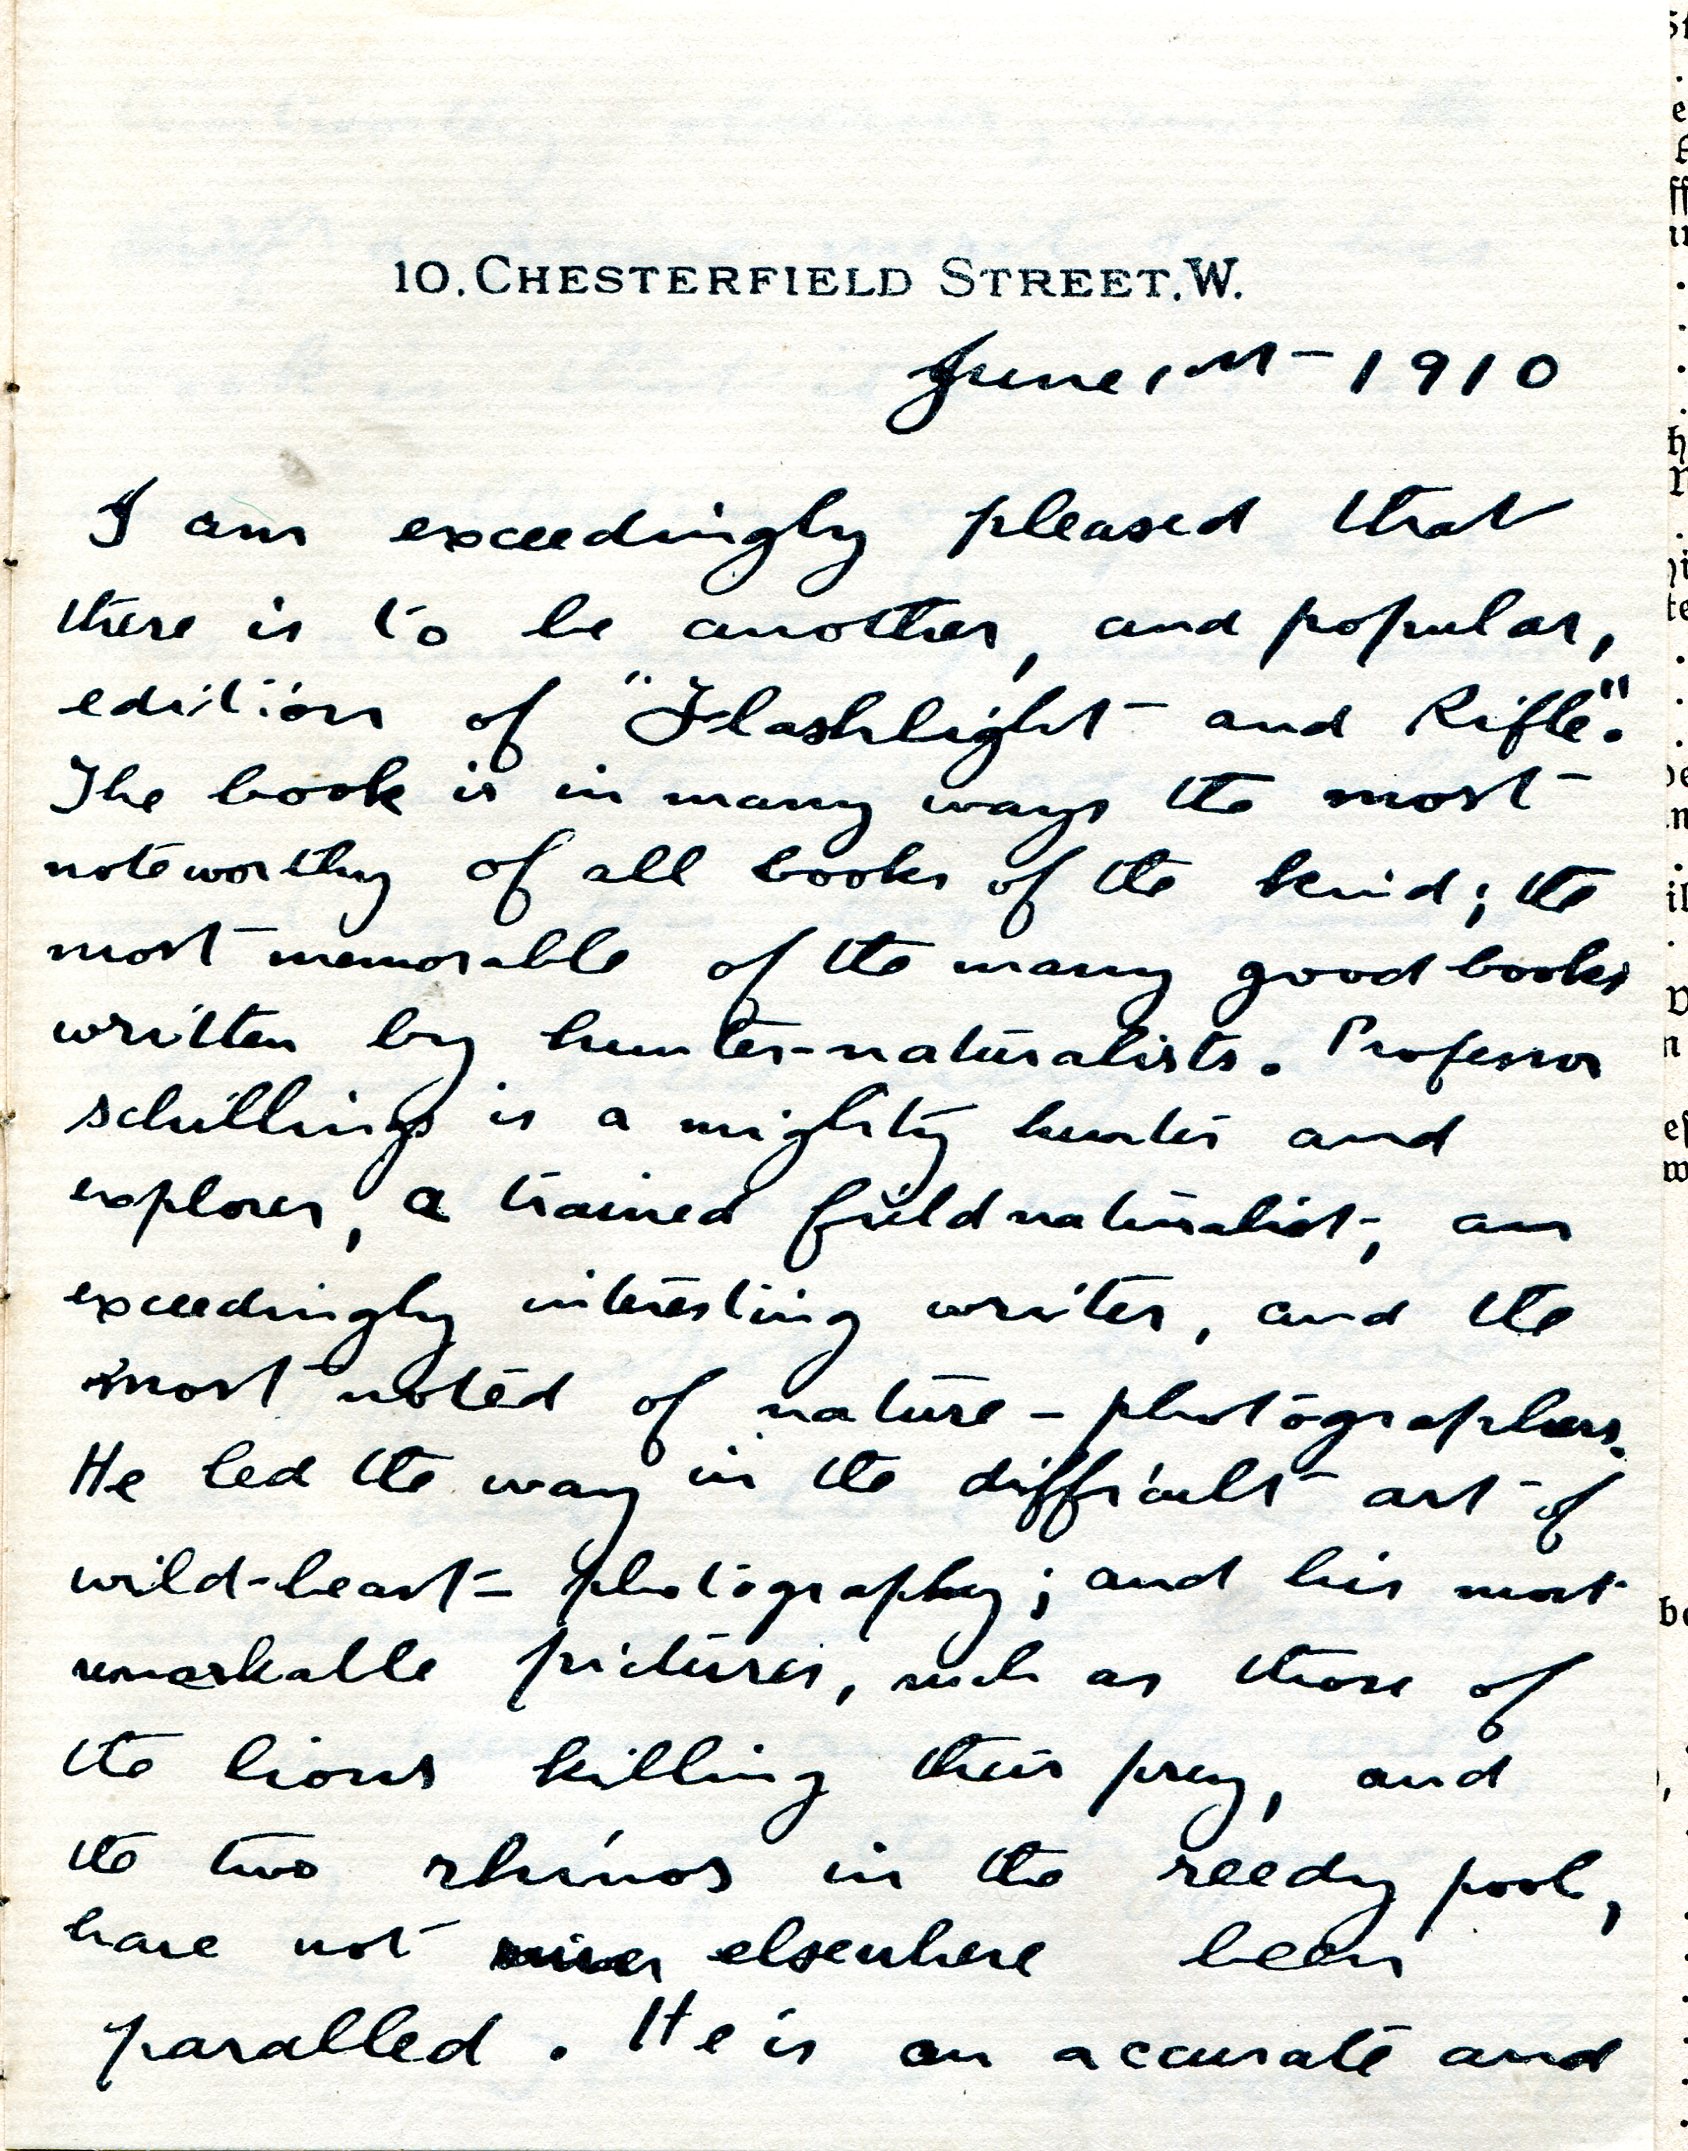 10, CHESTERFIELD STREET, W.
June 1st 1910
I am exceedingly pleased that
there is to be another, and popular,
edition of "Flashlight and Rifle".
The book is in many ways the most
noteworthy of all books of the kind; the
most memorable of the many good books
written by hunter-naturalists. Professor
Schillings is a mighty hunter and
explorer, a trained field naturalist, an
exceedingly interesting writer, and the
most noted of nature-photographers.
He led the way in the difficult art of
wild-beast-photography; and his most
remarkable pictures, such as those of
the lions killing their prey, and
the two rhinos in the reedy pool,
have not elsewhere been
paralled. He is an accurate and